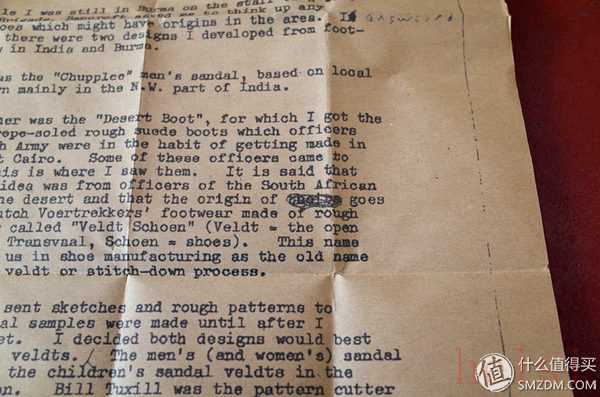 le I was still in Burma on the staff
Brigade, Bancroft asked me to think up any
oes which might have origins in the area. I answered
there were two designs I developed from foot-
w in India and Burma.
as the "Chupplee" men's sandal, based on local
n mainly in the N.W. part of India.
her was the "Desert Boot", for which I got the
repe-soled rough suede boots which officers
h Army were in the habit of getting made in
t Cairo. Some of these officers came to
his is where I saw them. It is said that
idea was from officers of the South African
he desert and that the origin of goes
utch Voertrekkers' footwear made of rough
r called "Veldt Schoen" (Veldt = the open
Transvaal, Schoen = shoes). This name
us in shoe manufacturing as the old name
veldt or stitch-down process.
sent sketches and rough patterns to
al samples were made until after I
et. I decided both designs would best
veldts. The men's (and women's) sandal
the children's sandal veldts in the
en. Bill Tuxill was the pattern cutter
值 什么值得买
SMZDM.COM